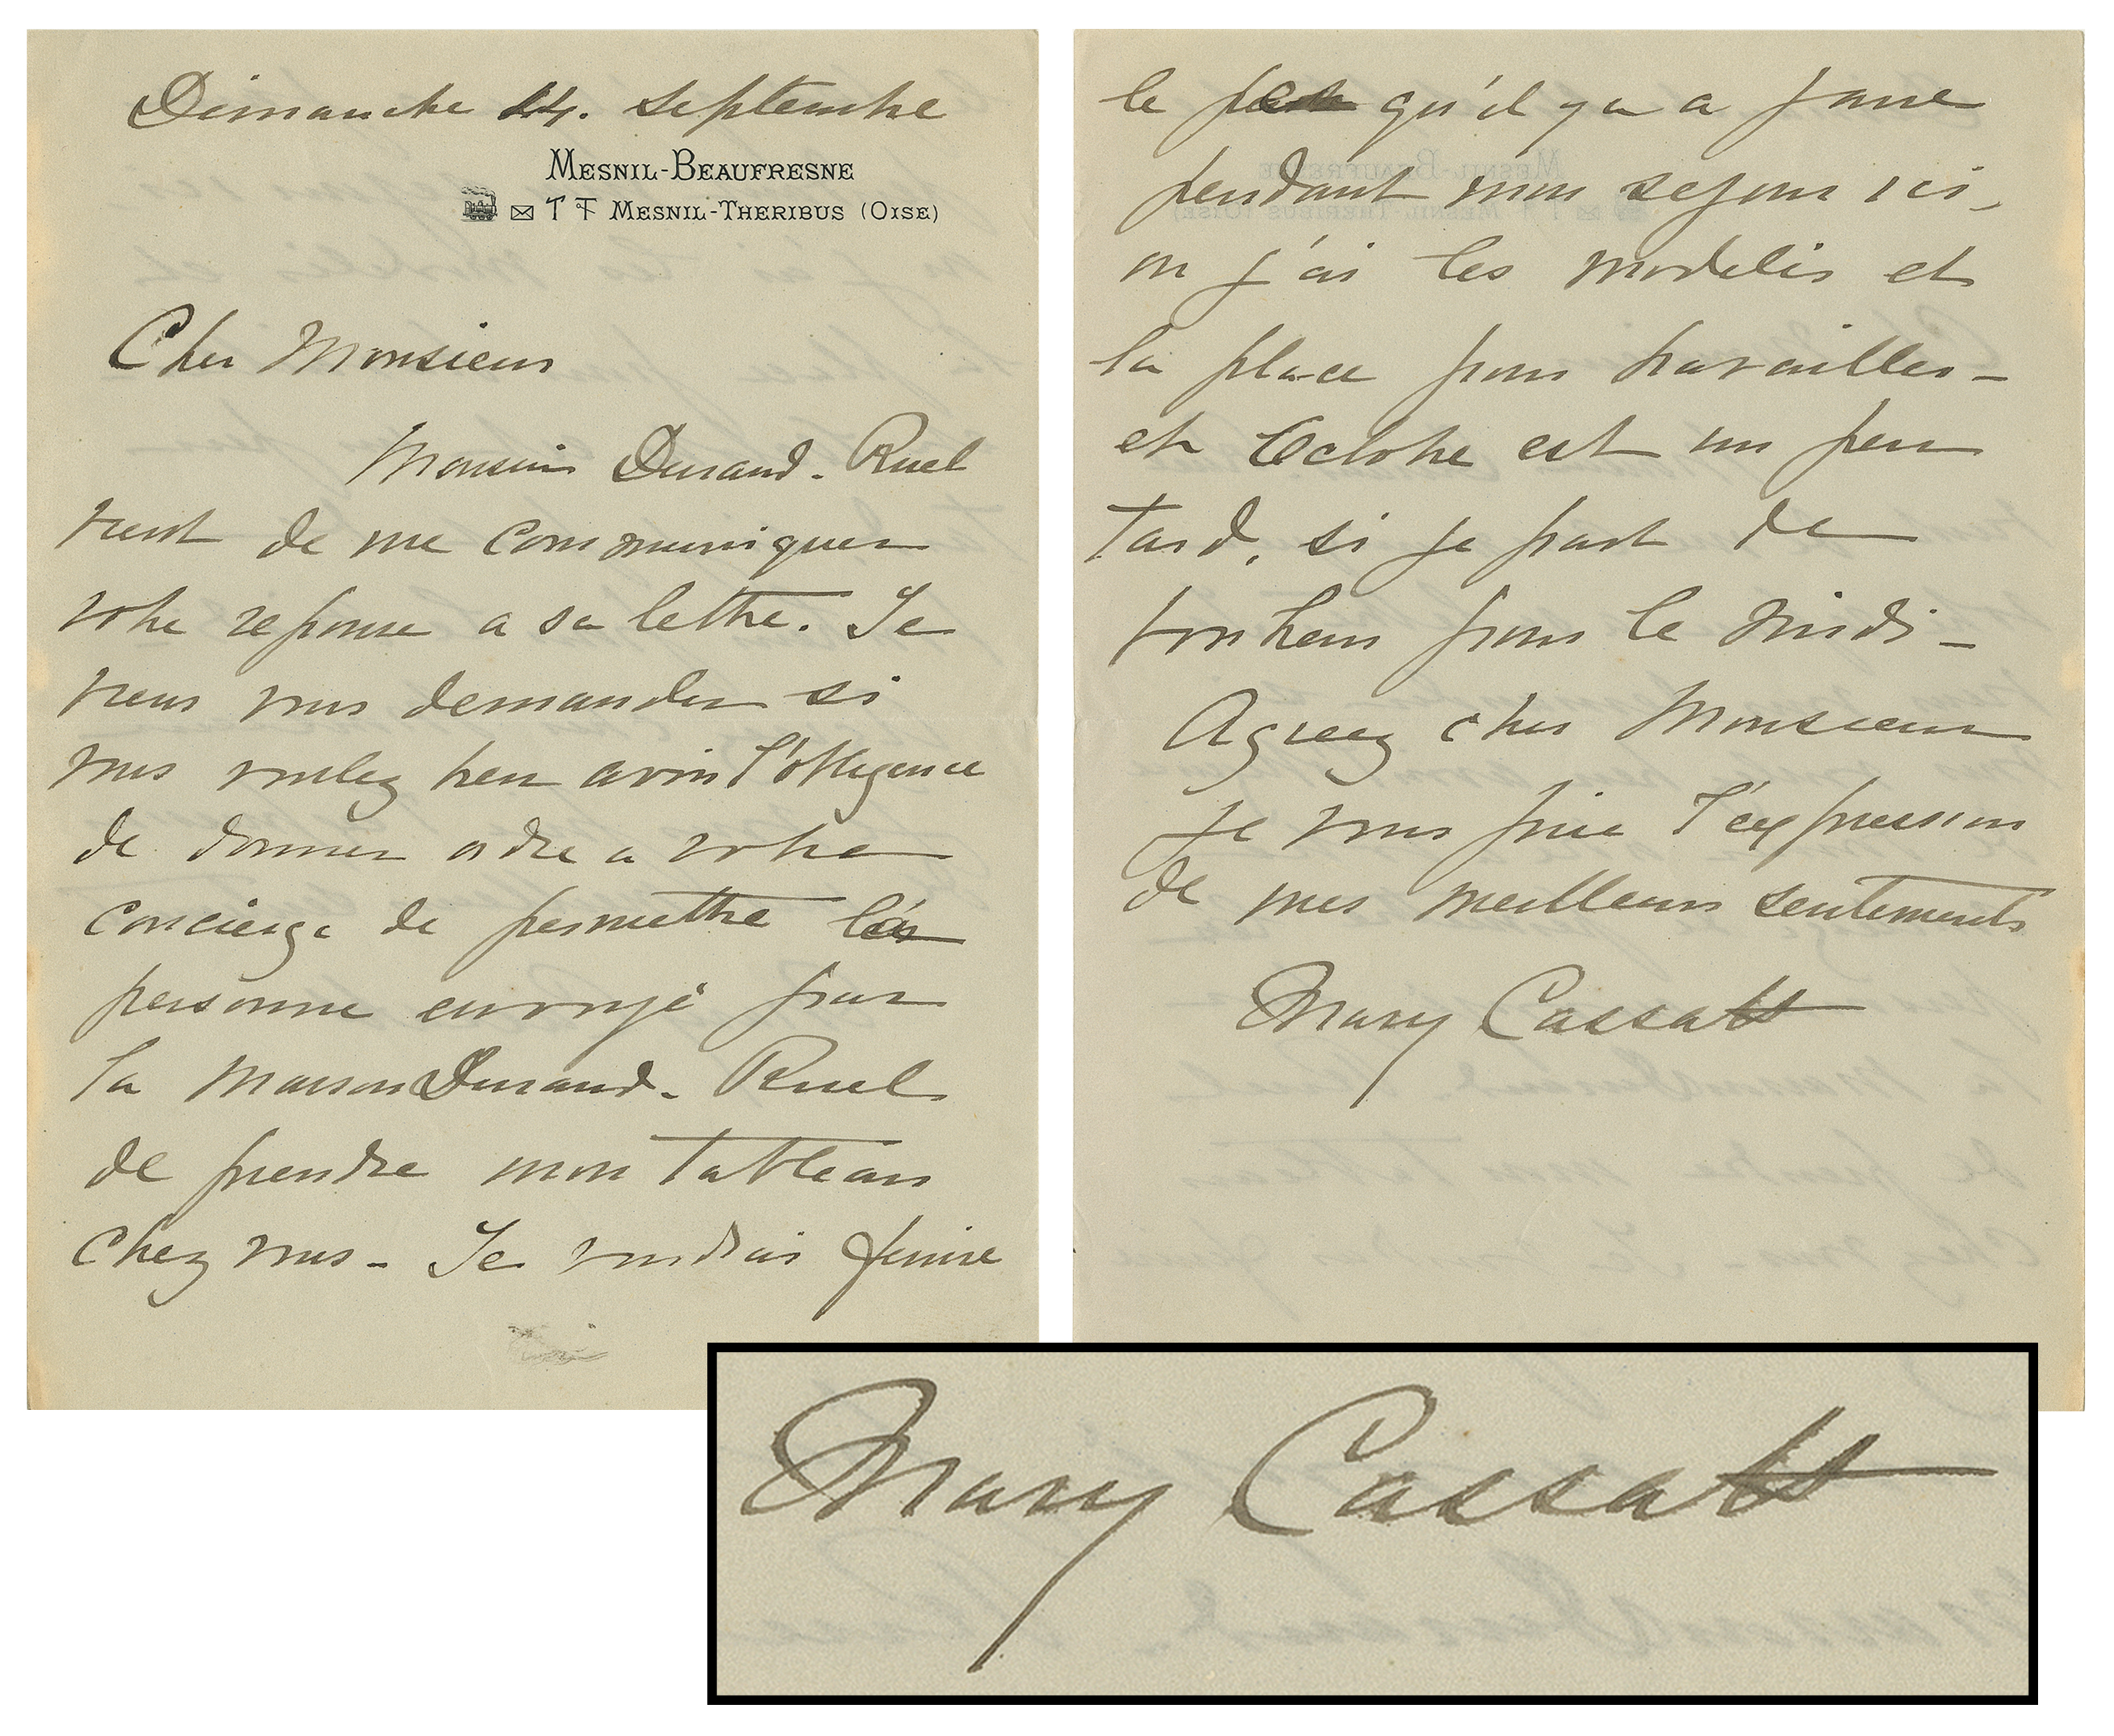 Dimanche 14. Septembre
MESNIL-BEAUFRESNE
T F MESNIL-THERIBUS (OISE)
Cher Monsieur
Monsieur Durand-Ruel
vient de me communiquer
votre reponse a sa lettre. Je
viens vous demander si
vous voulez bien avoir l'obligence
de donner ordre a votre
concierge de permettre
personne envoyé par
la maison Durand-Ruel
de prendre mon tableau
chez vous - Je voudrais finire
le peu qu'il y a a faire
pendant mon sejour ici,
ou j'ai les modeles et
la place pour travailler -
et Octobre est un peu
tard, si je part de
bonheur pour le midi -
Agreez cher Monsieur
je vous prie l'expression
de mes meilleurs sentements
Mary Cassatt
Mary Cassatt